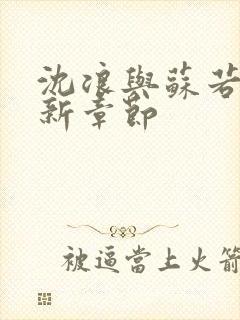 沈浪與蘇若
新章節
被逼當上火箭